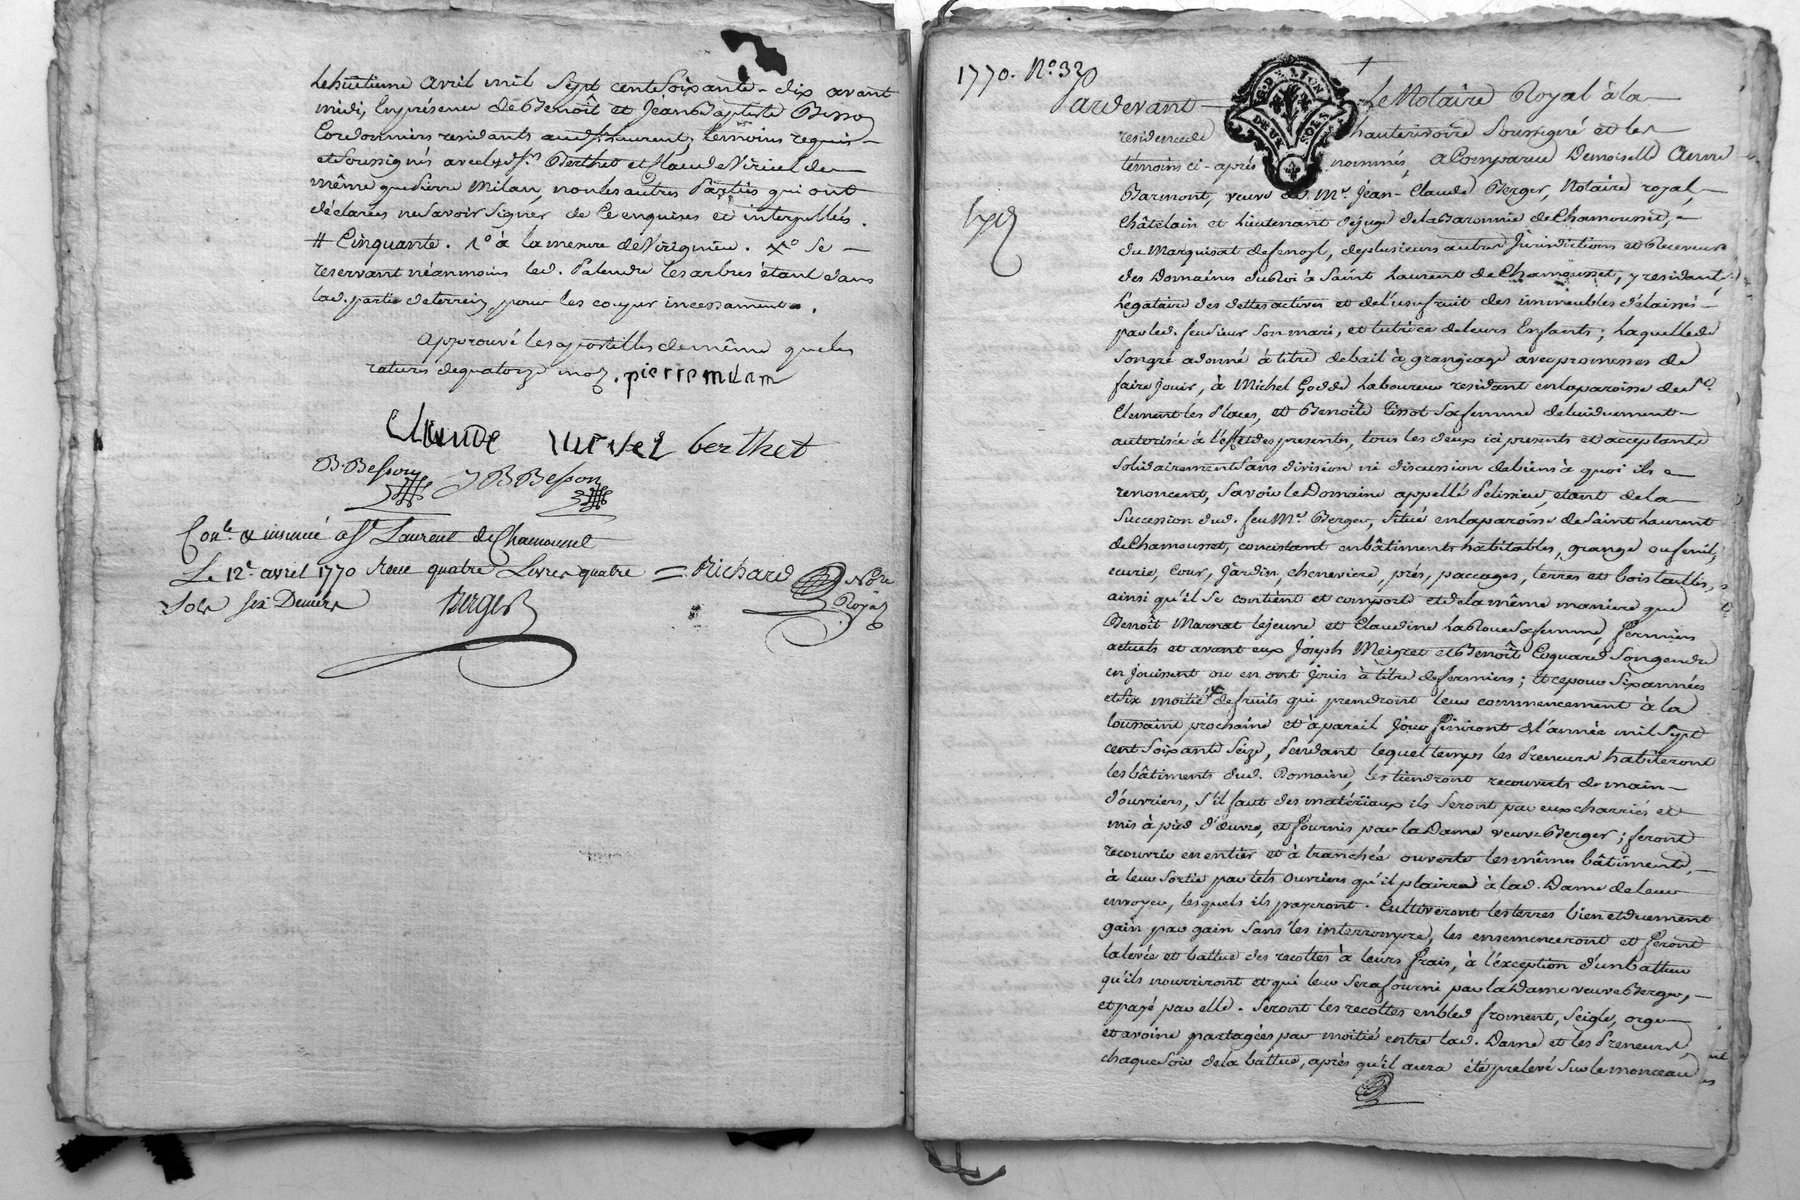 Le huitieme avril mil sept cent soixante-dix avant
midi, en présence de Benoît et Jean Baptiste Besson
Cordonniers residants aud. St Laurent, témoins requis
et soussignés avec led. Sr. Berthet et Claude Viricel de
même que Pierre Milan, non les autres Parties qui ont
déclarées ne savoir signer de ce enquises et interpellés.
# Cinquante. 1º à la mesure de Virigneu. Xº se
reservant néanmoins led. Palendre les arbres étant dans
lad. partie de terrein, pour les couper incessament.
approuvé les apostilles de même que les
ratures de quatorze mots. pierre milan
Claude viricel berthet
B. Besson J B Besson
Conle. & insinué à St Laurent de Chamousset
Le 12e avril 1770 Reçu quatre Livres quatre = Richard Nore
Sols six Deniers Berger Royal
1770. Nº 32
Pardevant Le Notaire Royal à la
G. DE LYON
DEUX SOLS
residence de hauterivoire soussigné et les
témoins ci-après nommés, a Comparue Demoiselle Anne
Barmont, veuve de Me. Jean-Claude Berger, Notaire royal,
Châtelain et Lieutenant de juge de la Baronnie de Chamousset,
du Marquisat de senoyl, de plusieurs autres Jurisdictions et Receveur
des Domaines du Roi à Saint Laurent de Chamousset, y residant,
Legataire des dettes actives et de l'usufruit des immeubles délaissés
par led. feu sieur son mari, et tutrice de leurs Enfants; Laquelle de
son gré a donné à titre de bail à grangeage avec promesses de
faire jouir, à Michel Godde Laboureur residant en la paroisse de St.
Clement les Places, et Benoîte Tissot sa femme de lui duement
autorisée à l'effet des presentes, tous les deux ici presents et acceptants
solidairement sans division ni discussion de biens à quoi ils
renoncent, savoir le Domaine appellé Pelissieu, etant de la
succession dud. feu Me. Berger, situé en la paroisse de Saint Laurent
de Chamousset, consistant en bâtiments habitables, grange ou fenil,
ecurie, cour, Jardin, cheneviere, prés, paccages, terres et bois taillis,
ainsi qu'il se contient et comporte et de la même maniere que
Benoît Marnat le jeune et Claudine La Roue sa femme, Fermiers
actuels et avant eux Joseph Meigret et Benoît Coquard son gendre
en jouissent ou en ont joui à titre de fermiers; Et ce pour six années
et six moitié de fruits qui prendront leur commencement à la
toussaint prochaine et à pareil jour finiront de l'année mil sept
cent soixante seize, Pendant lequel temps les Preneurs habiteront
les bâtiments dud. Domaine, les tiendront recouverts de main
d'ouvriers, s'il faut des matériaux ils seront par eux charriés et
mis à pied d'œuvre, et fournis par la Dame veuve Berger; feront
recouvrir en entier et à tranchée ouverte les mêmes bâtiments,
à leur sortie par tels ouvriers qu'il plairra à lad. Dame de leur
envoyer, lesquels ils payeront. Cultiveront les terres bien et duement
gain par gain sans les interrompre, les ensemenceront et feront
la levée et battue des recoltes à leurs frais, à l'exception d'un batteur
qu'ils nourriront et qui leur sera fourni par la Dame veuve Berger,
et payé par elle. Seront les recoltes en bled froment, Seigle, orge
et avoine partagées par moitié entre lad. Dame et les Preneurs,
chaque soir de la battue, après qu'il aura été prelevé sur le monceau